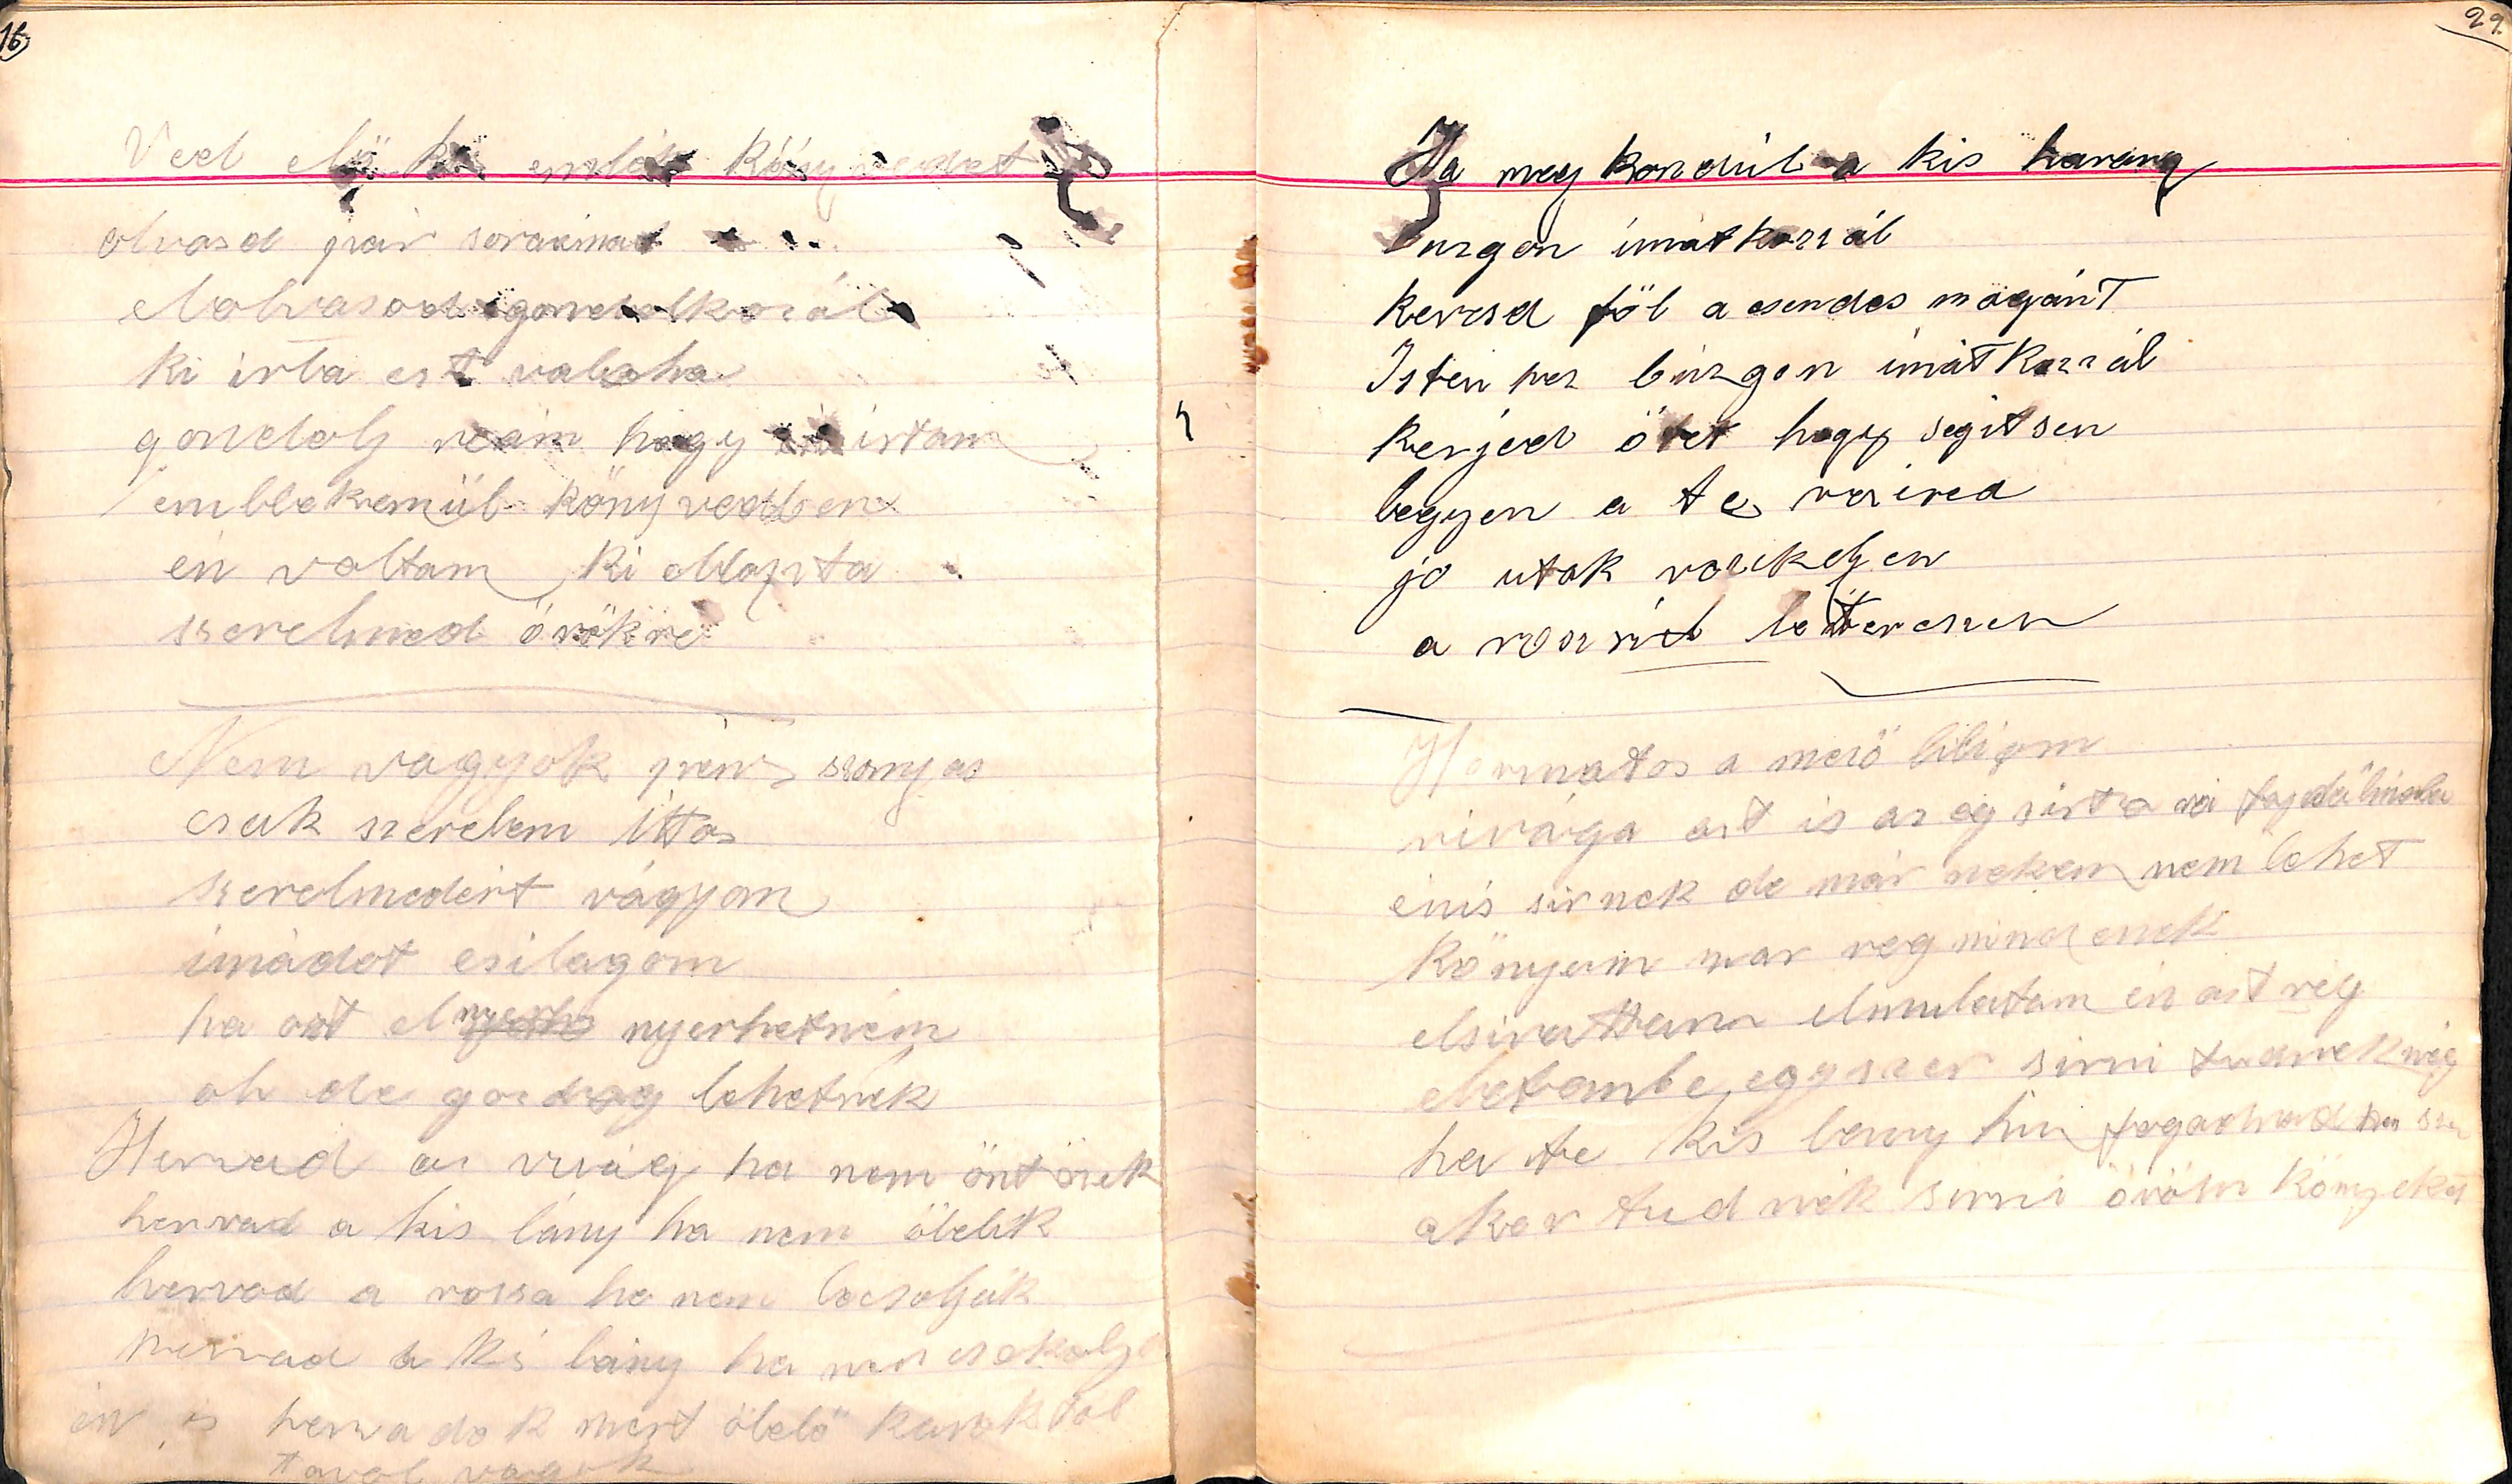 16
Ved elő kis emlék könyvedet
olvasd pár soraimat
elolvasod gondolkozál
ki irta ezt valaha
gondolj reám hogy én irtam
emblekemül könyvedben
én voltam ki ellopta
szerelmed örökre
Nem vagyok pénz szomjas
csak szerelem ittas
szerelmedért vágyom
imádot csilagom
ha azt el nyerhetném
oh de gazdag lehetnék
Hervad az virág ha nem öntözik
hervad a kis lány ha nem ölelik
hervad a rózsa ha nem locsolják
hervad a kis lány ha nem csokolja
én is hervadok mert ölelő karoktol
tavol vagyok
29.
Ha meg kondúl a kis harang
buzgon imátkozzál
keresd föl a csendes magánt
Isten hez búzgon imátkozzál
kerjed ötet hogy segitsen
legyen a te vezired
jo utak vezekeljen
a rosznúl letereszen
Harmatos a mező liliom
virága azt is az ég sirta rá fajdalmába
énis sirnek de már nekem nem lehet
Könyeim mar reg nincsenek
elsirattam elmulatam én azt rég
eletembe egyszer sirni tudnek még
ha te kis lany hű fogadnad ha
akor tudnék sirni öröm könyeket